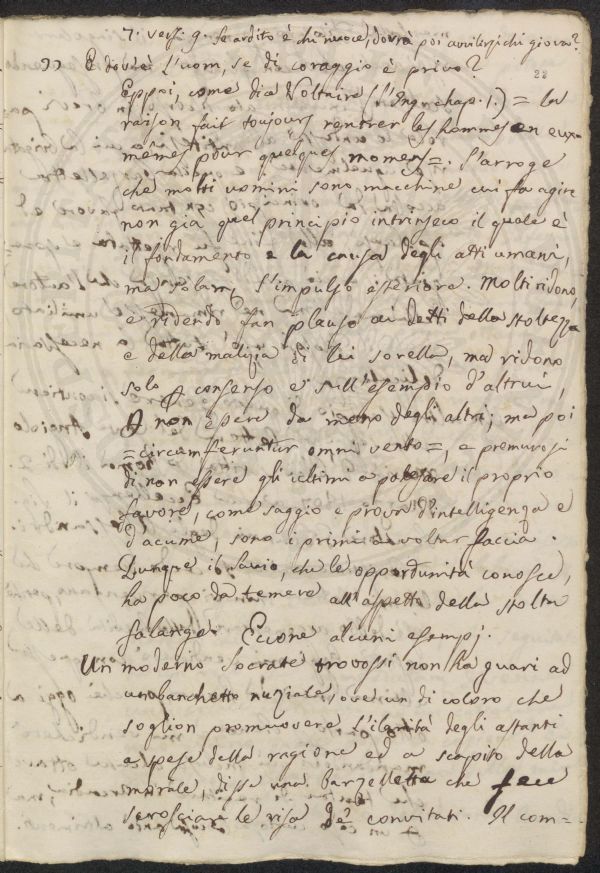 7. verst. 9. Se ardito è chi nuoce, dovrà poi avvilirsi chi giova?
E dovrà l'uom, se di coraggio è privo?
22
Eppoi, come dice Voltaire (l'Ing. chap. 1.) = la
raison fait toujours rentrer les hommes en eux-
mêmes pour quelques momens =. S'arroge
che molti uomini sono macchine cui fa agire
non già quel principio intrinseco il quale è
il fondamento e la causa degli atti umani,
ma solam. l'impulso esteriore. Molti ridono,
e ridendo fan plauso ai detti della stoltezza
e della malizia di lei sorella, ma ridono
solo p consenso e sull'esempio d'altrui,
p non essere da meno degli altri; ma poi
= circumferuntur omni vento =, e premurosi
di non essere gli ultimi a palesare il proprio
favore, come saggio e prova d'intelligenza e
d'acume, sono i primi a voltar faccia.
Dunque il savio, che le opportunità conosce,
ha poco da temere all'aspetto della stolta
falange. Eccone alcuni esempj.
Un moderno Socrate trovossi non ha guari ad
un banchetto nuziale, ove un di coloro che
soglion promuovere l'ilarità degli astanti
a spese della ragione ed a scapito della
morale, disse una barzelletta che fece
scrosciar le risa de' convitati. Il com=